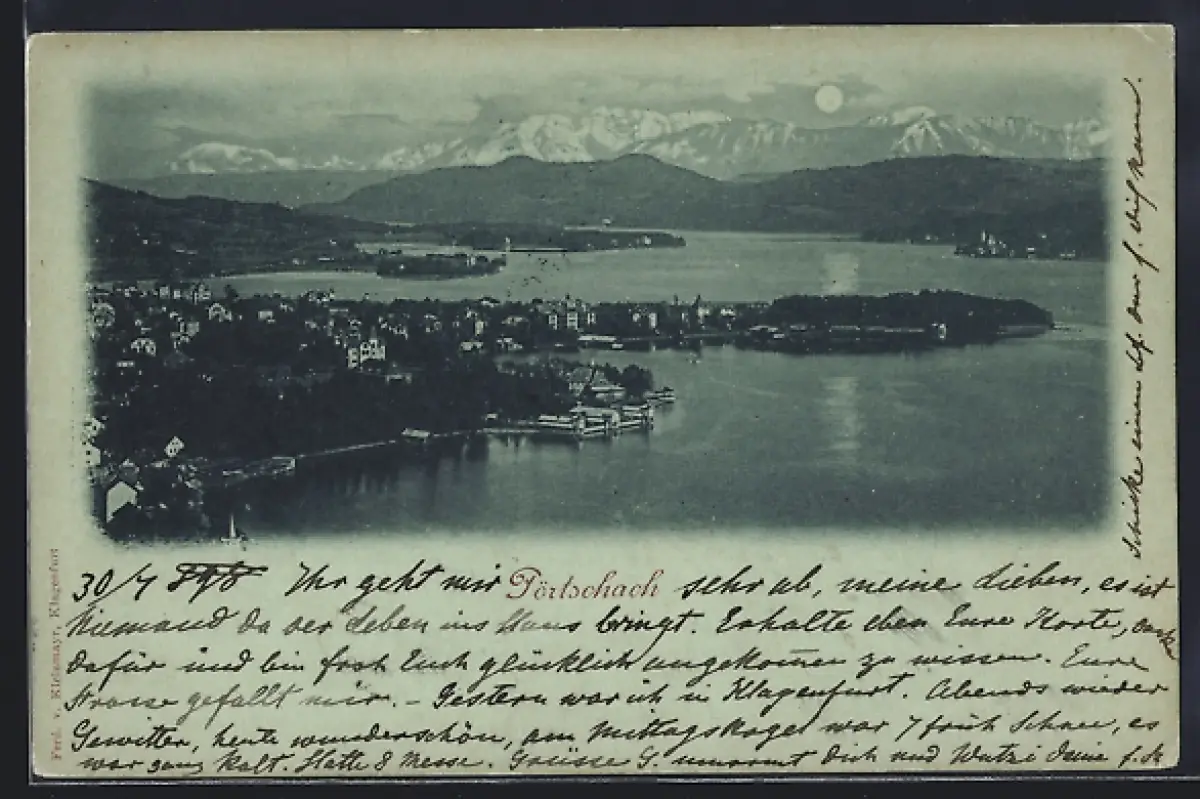 30/7 898 Ihr geht mir Pörtschach sehr ab, meine Lieben, es ist
Niemand da der Leben ins Haus bringt. Erhalte eben Eure Karte, dank
dafür und bin froh Euch glücklich angekommen zu wissen. Eure
Strasse gefällt mir. – Gestern war ich in Klagenfurt. Abends wieder
Gewitter, heute wunderschön, am Mittagskogel war 7 früh Schnee, es
war ganz kalt. Hatte 8 Messe. Grüsse G. umarmt Dich und Deine
Schicke einen
Ferd. v. Kleinmayr, Klagenfurt